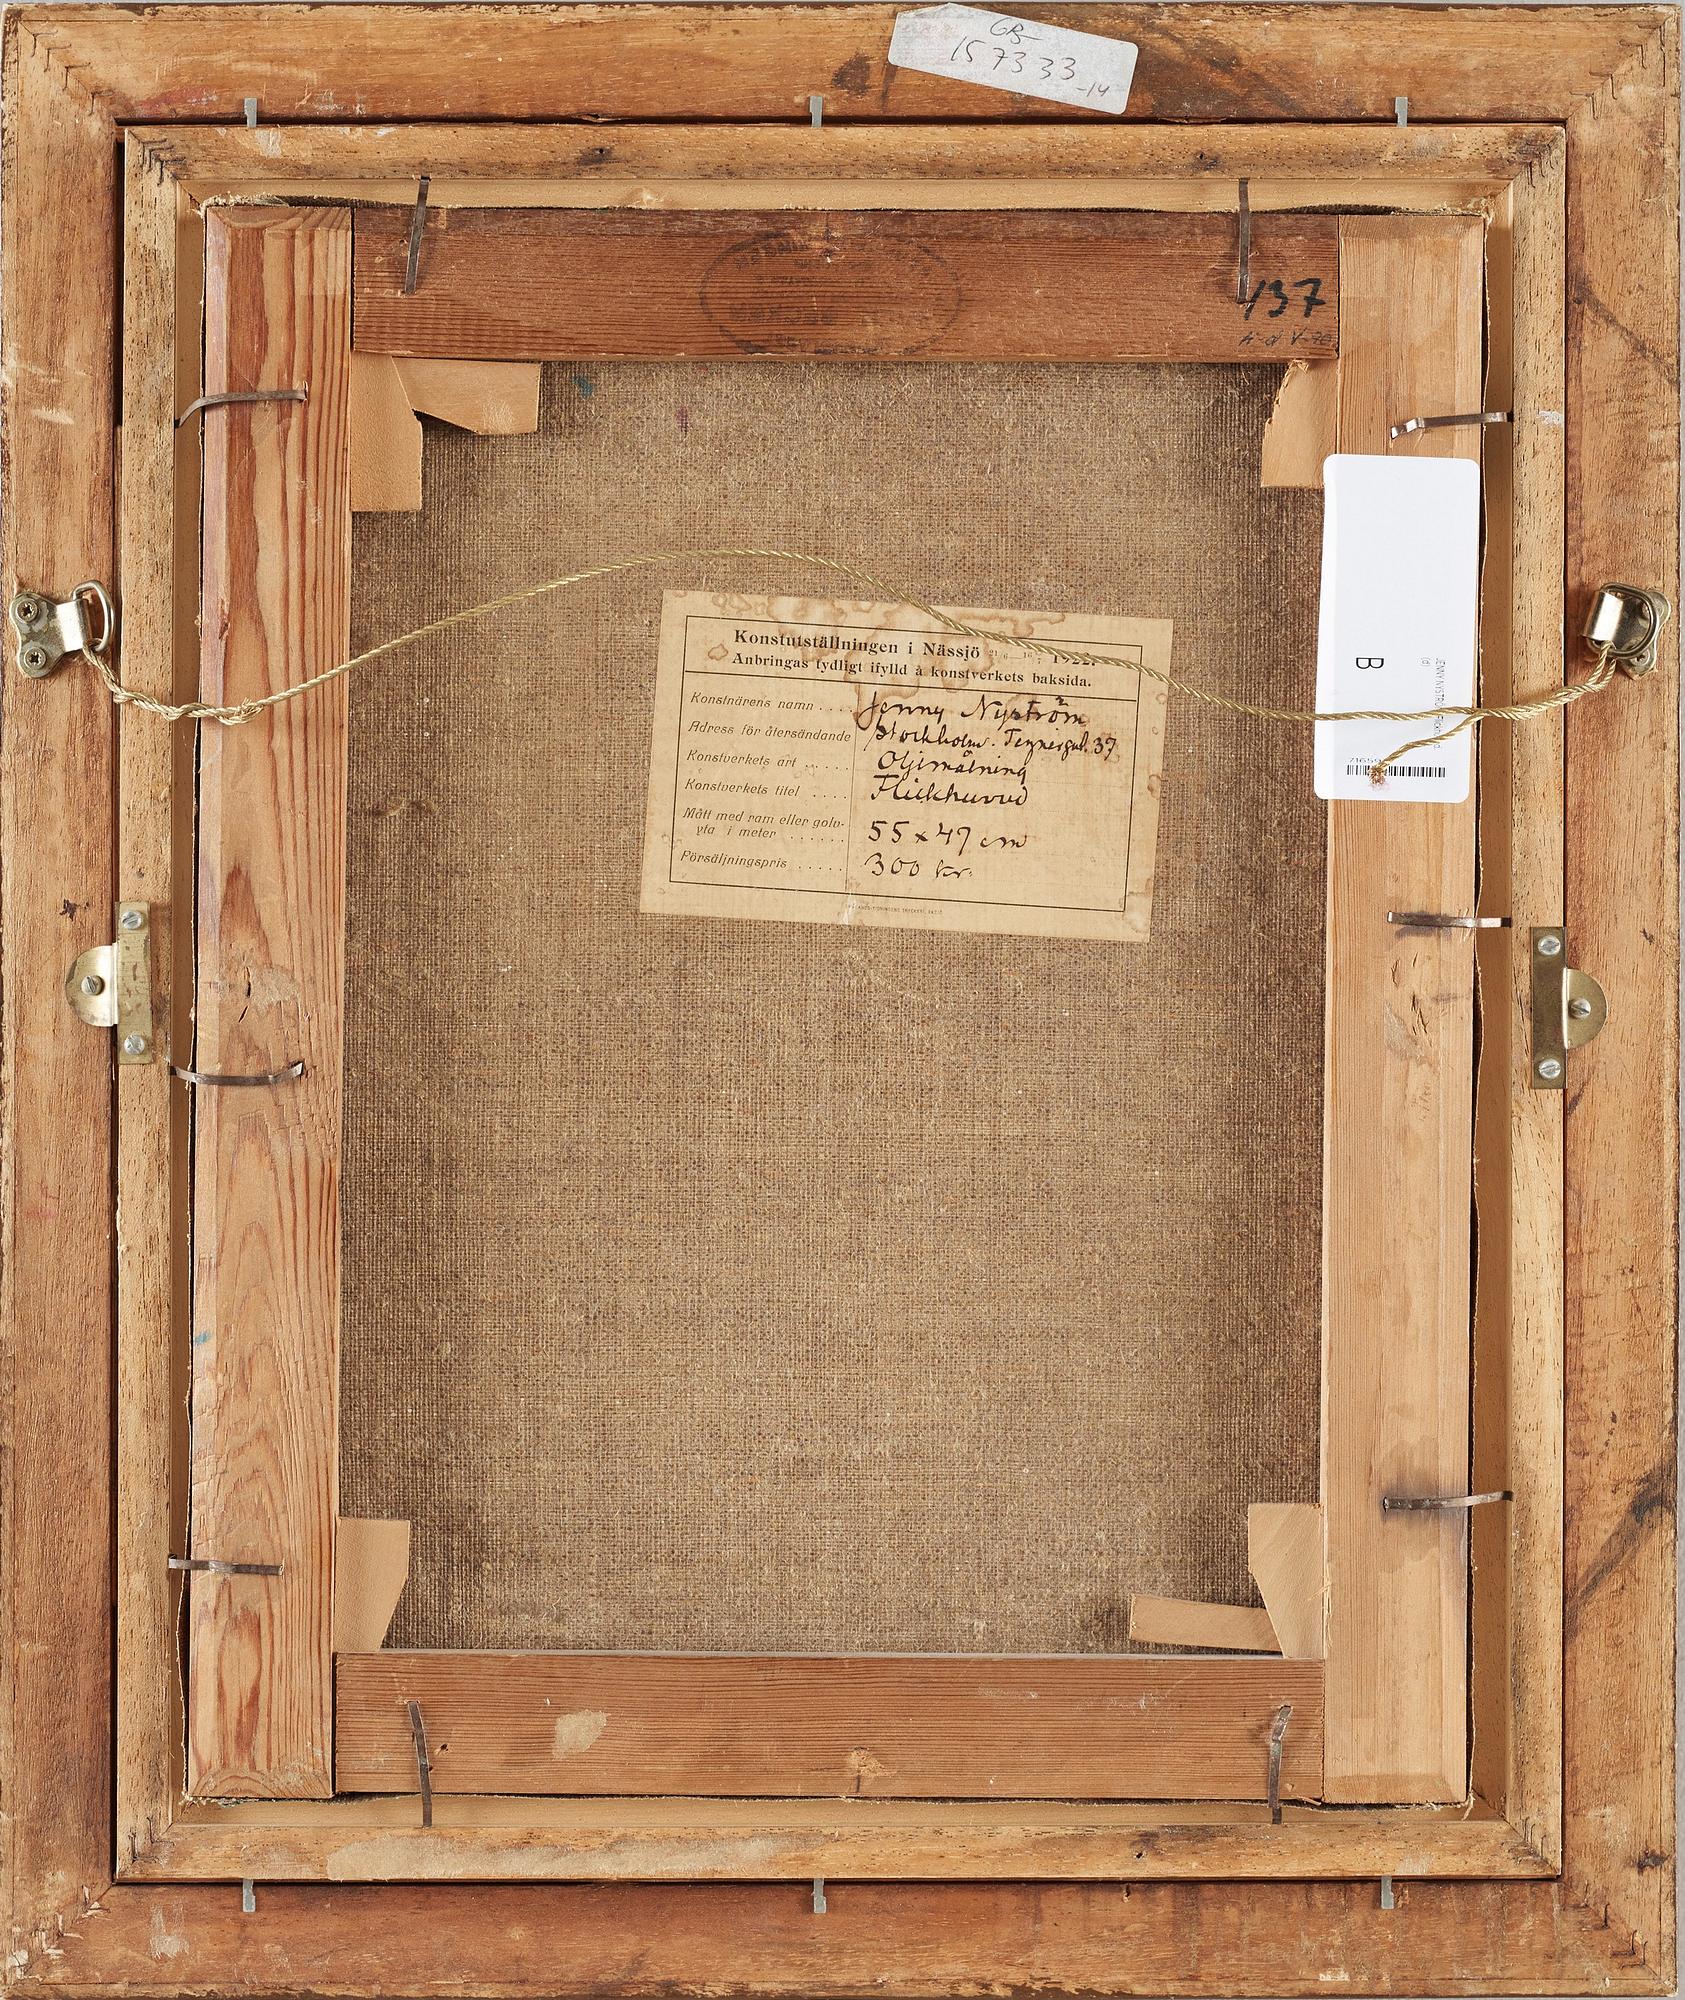 GB-
157333
-14
137
Konstutställningen i Nässjö 21/6—16/7 1922.
Anbringas tydligt ifylld å konstverkets baksida.
Konstnärens namn .... Jenny Nyström
Adress för återsändande Stockholm. 37
Konstverkets art ...... Oljemålning
Konstverkets titel .... Flickhuvud
Mått med ram eller golv-
yta i meter ...... 55 x 47 cm
Försäljningspris ...... 300 kr.
B
JENNY NYSTRÖM